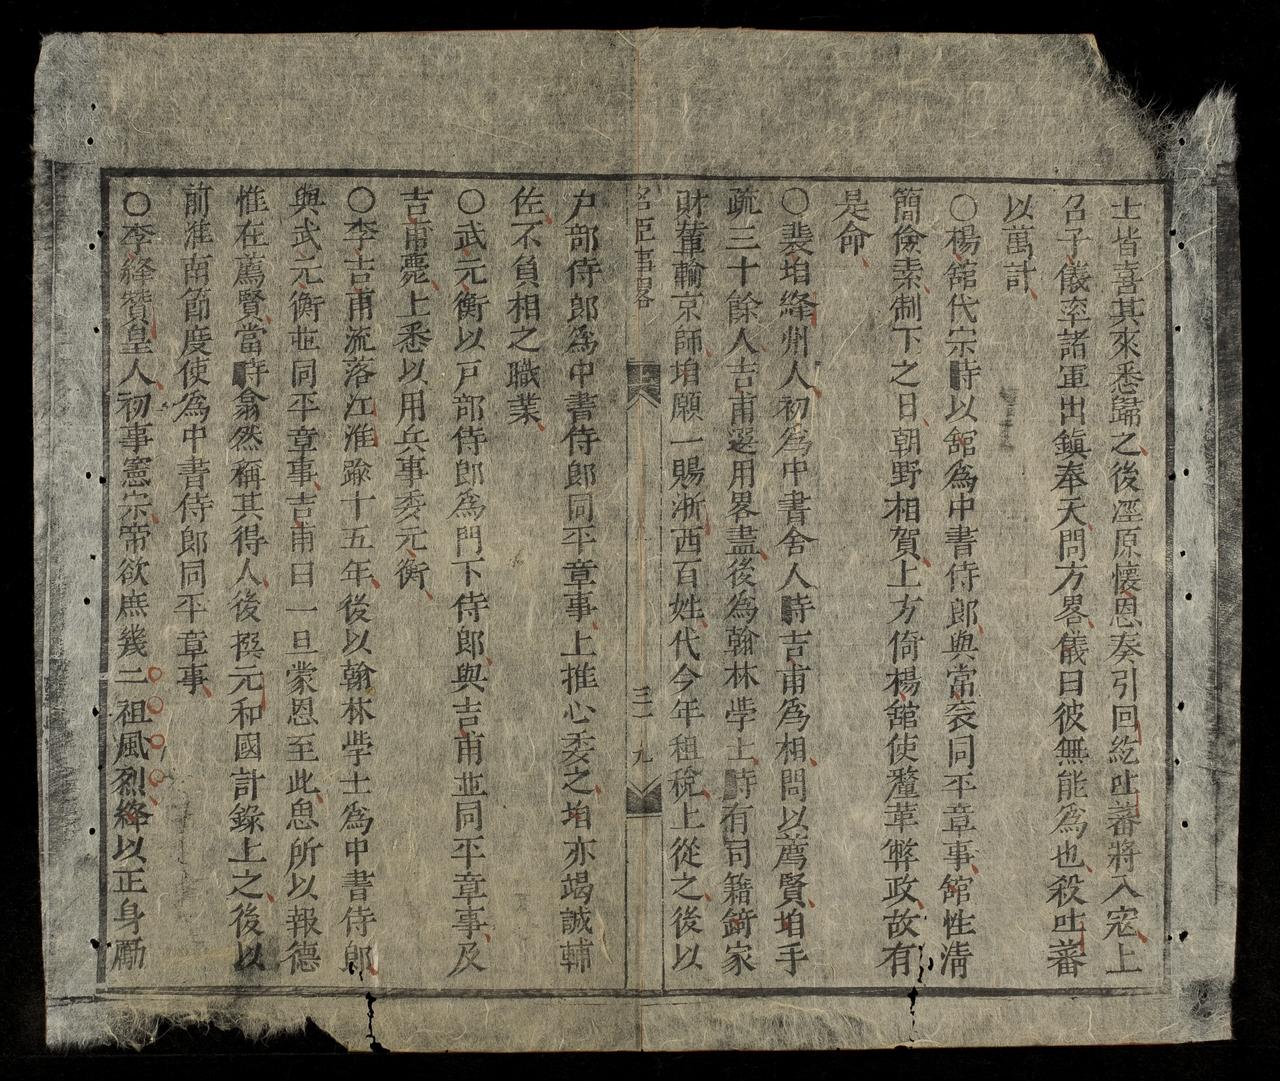 士皆喜其來悉歸之後涇原懷恩奏引回紇吐蕃將入寇上
召子儀率諸軍出鎮奉天問方畧儀曰彼無能為也殺吐蕃
以萬計
○楊綰代宗時以綰為中書侍郎與常衮同平章事綰性清
簡儉素制下之日朝野相賀上方倚楊綰使釐革弊政故有
是命
○裴垍絳州人初為中書舍人時吉甫為相問以薦賢垍手
疏三十餘人吉甫選用畧盡後為翰林學士時有司籍錡家
財輦輸京師垍願一賜浙西百姓代今年租稅上從之後以
名臣事畧
三一 九
户部侍郎為中書侍郎同平章事上推心委之垍亦竭誠輔
佐不負相之職業
○武元衡以戸部侍郎為門下侍郎與吉甫並同平章事及
吉甫薨上悉以用兵事委元衡
○李吉甫流落江淮踰十五年後以翰林學士為中書侍郎
與武元衡並同平章事吉甫曰一旦蒙恩至此思所以報德
惟在薦賢當時翕然稱其得人後撰元和國計錄上之後以
前淮南節度使為中書侍郎同平章事
○李絳贊皇人初事憲宗帝欲庶幾二祖風烈絳以正身勵